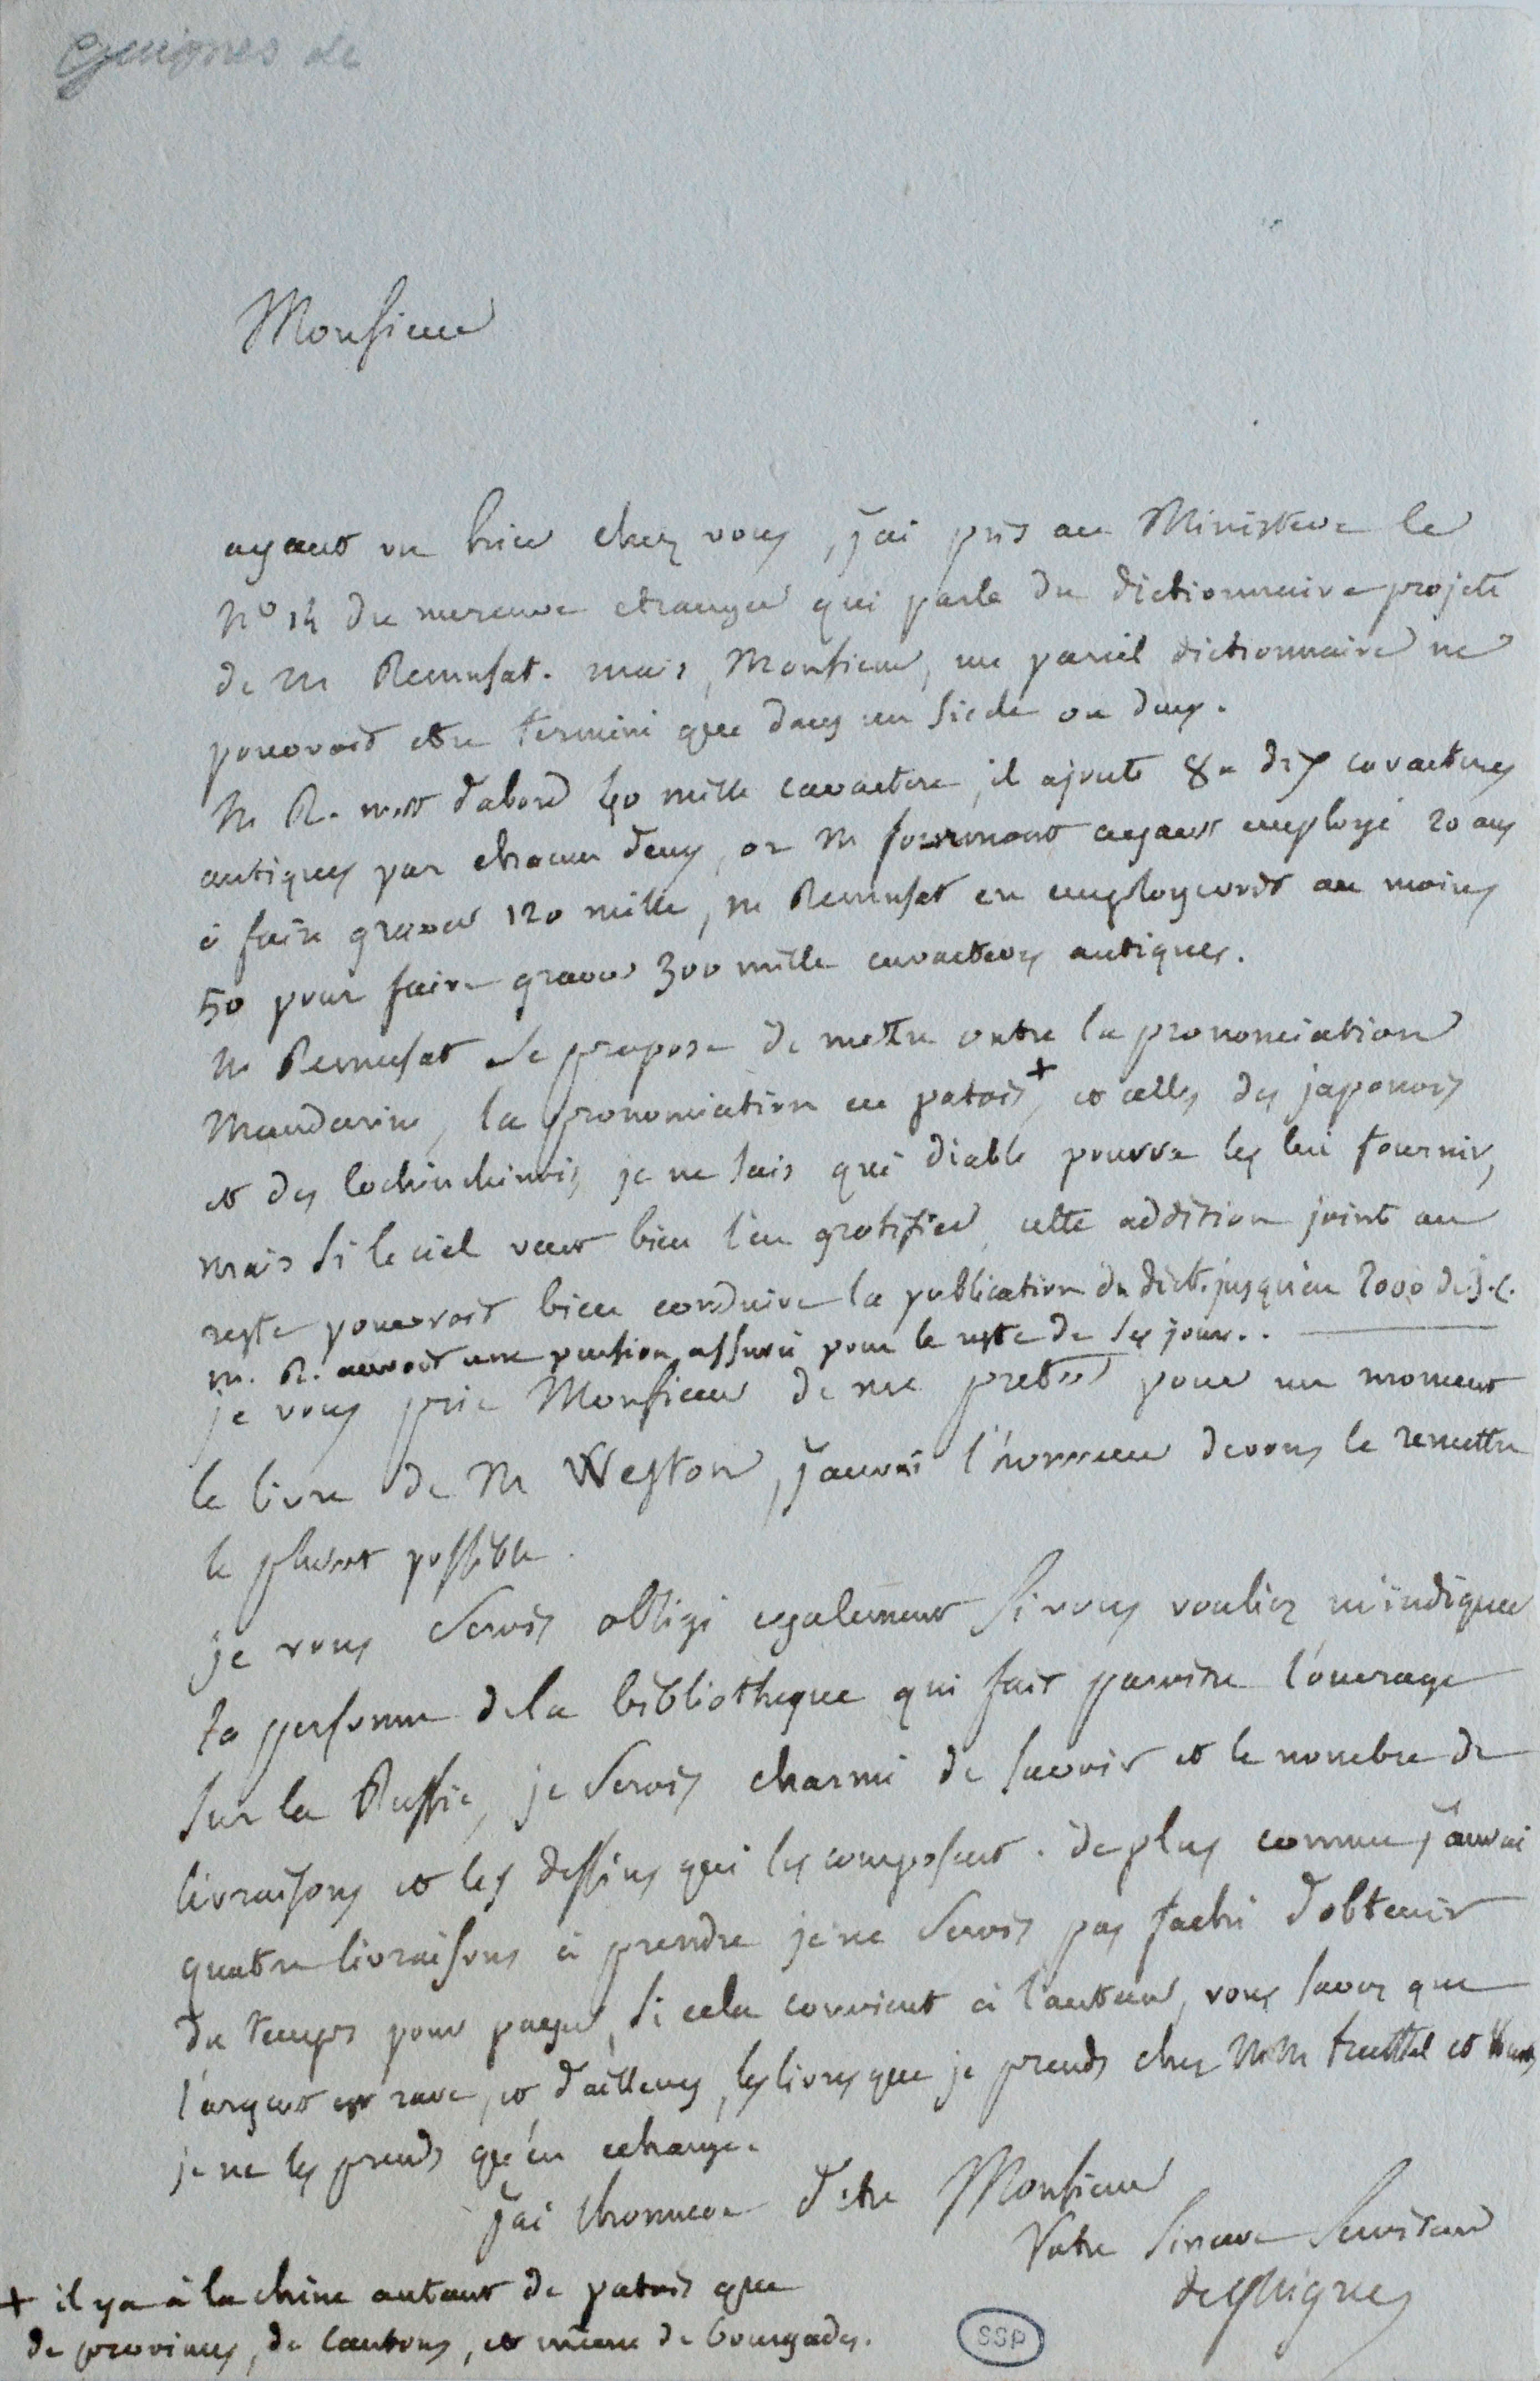 Guignes de
Monsieur
ayant vu hier chez vous, j'ai pris au Ministere le
No 14 du mercure etranger qui parle du dictionnaire projeté
de M Remusat. mais, Monsieur, un pareil dictionnaire ne
pourroit etre terminé que dans un siecle ou deux.
M R. met d'abord 40 mille caractere, il ajoute 8 a dix caracteres
antiques par chacun d'eux, or M fourmont ayant employé 20 ans
à faire graver 120 mille, M Remusat en employeroit au moins
50 pour faire graver 300 mille caracteres antiques.
M Remusat se propose de mettre outre la prononciation
Mandarine, la prononciation en patois +, et celles des japonois
et des Cochinchinois, je ne sais qui diable pourra les lui fournir,
mais si le ciel veut bien l'en gratifier, cette addition joint au
reste pourroit bien conduire la publication du dict. jusqu'en 2000 de J.C.
M. R. auroit une pension assurée pour le reste de ses jours..
je vous prie Monsieur de me preter pour un moment
le livre de M Weston, j'aurai l'honneur de vous le remettre
le plutot possible.
je vous serois obligé egalement si vous vouliez m'indiquer
la personne de la bibliotheque qui fait paroitre l'ouvrage
sur la Russie, je serois charmé de savoir et le nombre de
livraisons et les dessins qui les composent. de plus comme j'aurai
quatre livraisons à prendre je ne serois pas faché d'obtenir
du temps pour payer, si cela convient à l'auteur, vous savez que
l'argent est rare, et d'ailleurs, les livres que je prends chez MM treuttel et Wurtz
je ne les prends qu'en echange.
j'ai l'honneur d'etre Monsieur
Votre sincere serviteur
deGuignes
+ il y a à la chine autant de patois que
de provinces, de cantons, et meme de bourgades.
SSP